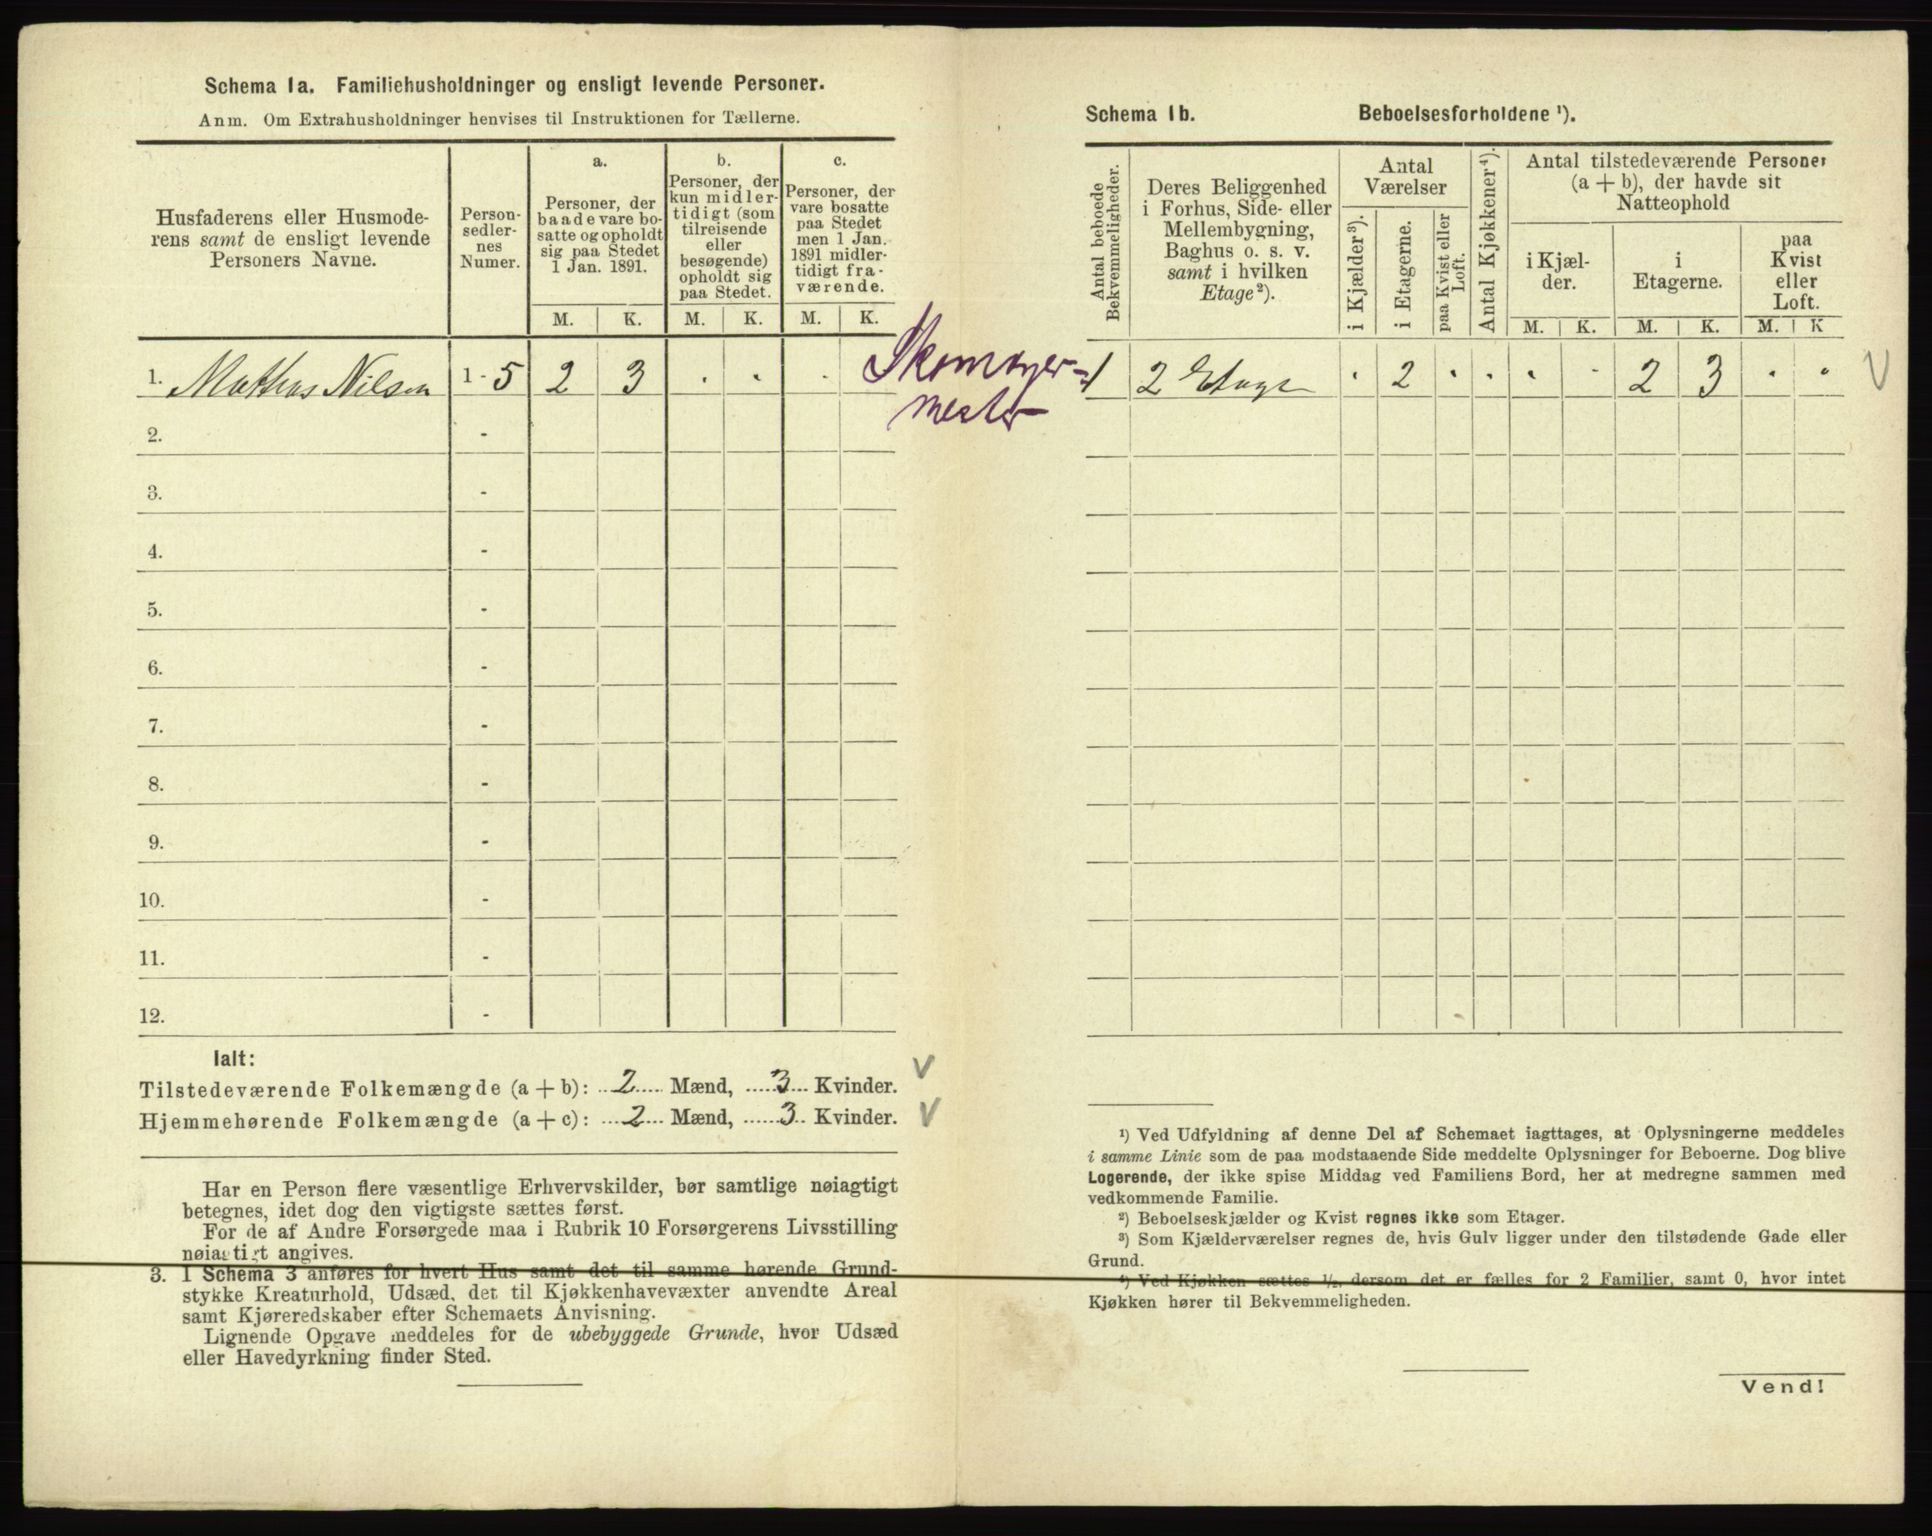 Schema 1a. Familiehusholdninger og ensligt levende Personer.
Anm. Om Extrahusholdninger henvises til Instruktionen for Tællerne.
Husfaderens eller Husmode-
rens samt de ensligt levende
Personers Navne.
Person-
sedler-
nes
Numer.
a.
Personer, der
baade vare bo-
satte og opholdt
sig paa Stedet
1 Jan. 1891.
M. K.
b.
Personer, der
kun midler-
tidigt (som
tilreisende
eller
besøgende)
opholdt sig
paa Stedet.
M. K.
c.
Personer, der
vare bosatte
paa Stedet
men 1 Jan.
1891 midler-
tidigt fra-
værende.
M. K.
1. Mathias Nilsen 1 - 5 2 3 . . .
Skomager-
mester
2. -
3. -
4. -
5. -
6. -
7. -
8. -
9. -
10. -
11. -
12. -
Ialt:
Tilstedeværende Folkemængde (a + b): 2 Mænd, 3 Kvinder. V
Hjemmehørende Folkemængde (a + c): 2 Mænd, 3 Kvinder. V
Har en Person flere væsentlige Erhvervskilder, bør samtlige nøiagtigt
betegnes, idet dog den vigtigste sættes først.
For de af Andre Forsørgede maa i Rubrik 10 Forsørgerens Livsstilling
nøiagtigt angives.
3. I Schema 3 anføres for hvert Hus samt det til samme hørende Grund-
stykke Kreaturhold, Udsæd, det til Kjøkkenhavevæxter anvendte Areal
samt Kjøreredskaber efter Schemaets Anvisning.
Lignende Opgave meddeles for de ubebyggede Grunde, hvor Udsæd
eller Havedyrkning finder Sted.
Schema 1b. Beboelsesforholdene ¹).
Antal beboede
Bekvemmeligheder.
Deres Beliggenhed
i Forhus, Side- eller
Mellembygning,
Baghus o. s. v.
samt i hvilken
Etage²).
Antal
Værelser
i Kjælder³).
i Etagerne.
paa Kvist eller
Loft.
Antal Kjøkkener⁴).
Antal tilstedeværende Personer
(a + b), der havde sit
Natteophold
i Kjæl-
der.
i
Etagerne.
paa
Kvist
eller
Loft.
M. K. M. K. M. K
1 2 Etage . 2 . . . . 2 3 . . V
¹) Ved Udfyldning af denne Del af Schemaet iagttages, at Oplysningerne meddeles
i samme Linie som de paa modstaaende Side meddelte Oplysninger for Beboerne. Dog blive
Logerende, der ikke spise Middag ved Familiens Bord, her at medregne sammen med
vedkommende Familie.
²) Beboelseskjælder og Kvist regnes ikke som Etager.
³) Som Kjælderværelser regnes de, hvis Gulv ligger under den tilstødende Gade eller
Grund.
⁴) Ved Kjøkken sættes ½, dersom det er fælles for 2 Familier, samt 0, hvor intet
Kjøkken hører til Bekvemmeligheden.
Vend!